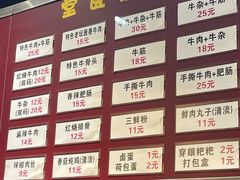 特色牛肉+牛筋
25元
特色老坛酸香牛肉
15元
牛杂+牛筋
30元
牛杂+牛杂
红烧牛肉12元
(双码) 20元
特色牛骨头
15元
牛肉+牛筋
18元
牛肉+牛杂
18元
牛杂 12元
(双码) 20元
香辣肥肠
15元
手撕牛肉
15元
手撕牛肉+肥肠
25元
麻辣牛肉
14元
红烧排骨
12元
三鲜粉
11元
鲜肉丸子(清淡)
11元
辣椒肉丝
9元
香菇炖鸡(清淡)
11元
卤蛋 1元
荷包蛋 2元
穿眼粑粑 2元
打包盒 1元